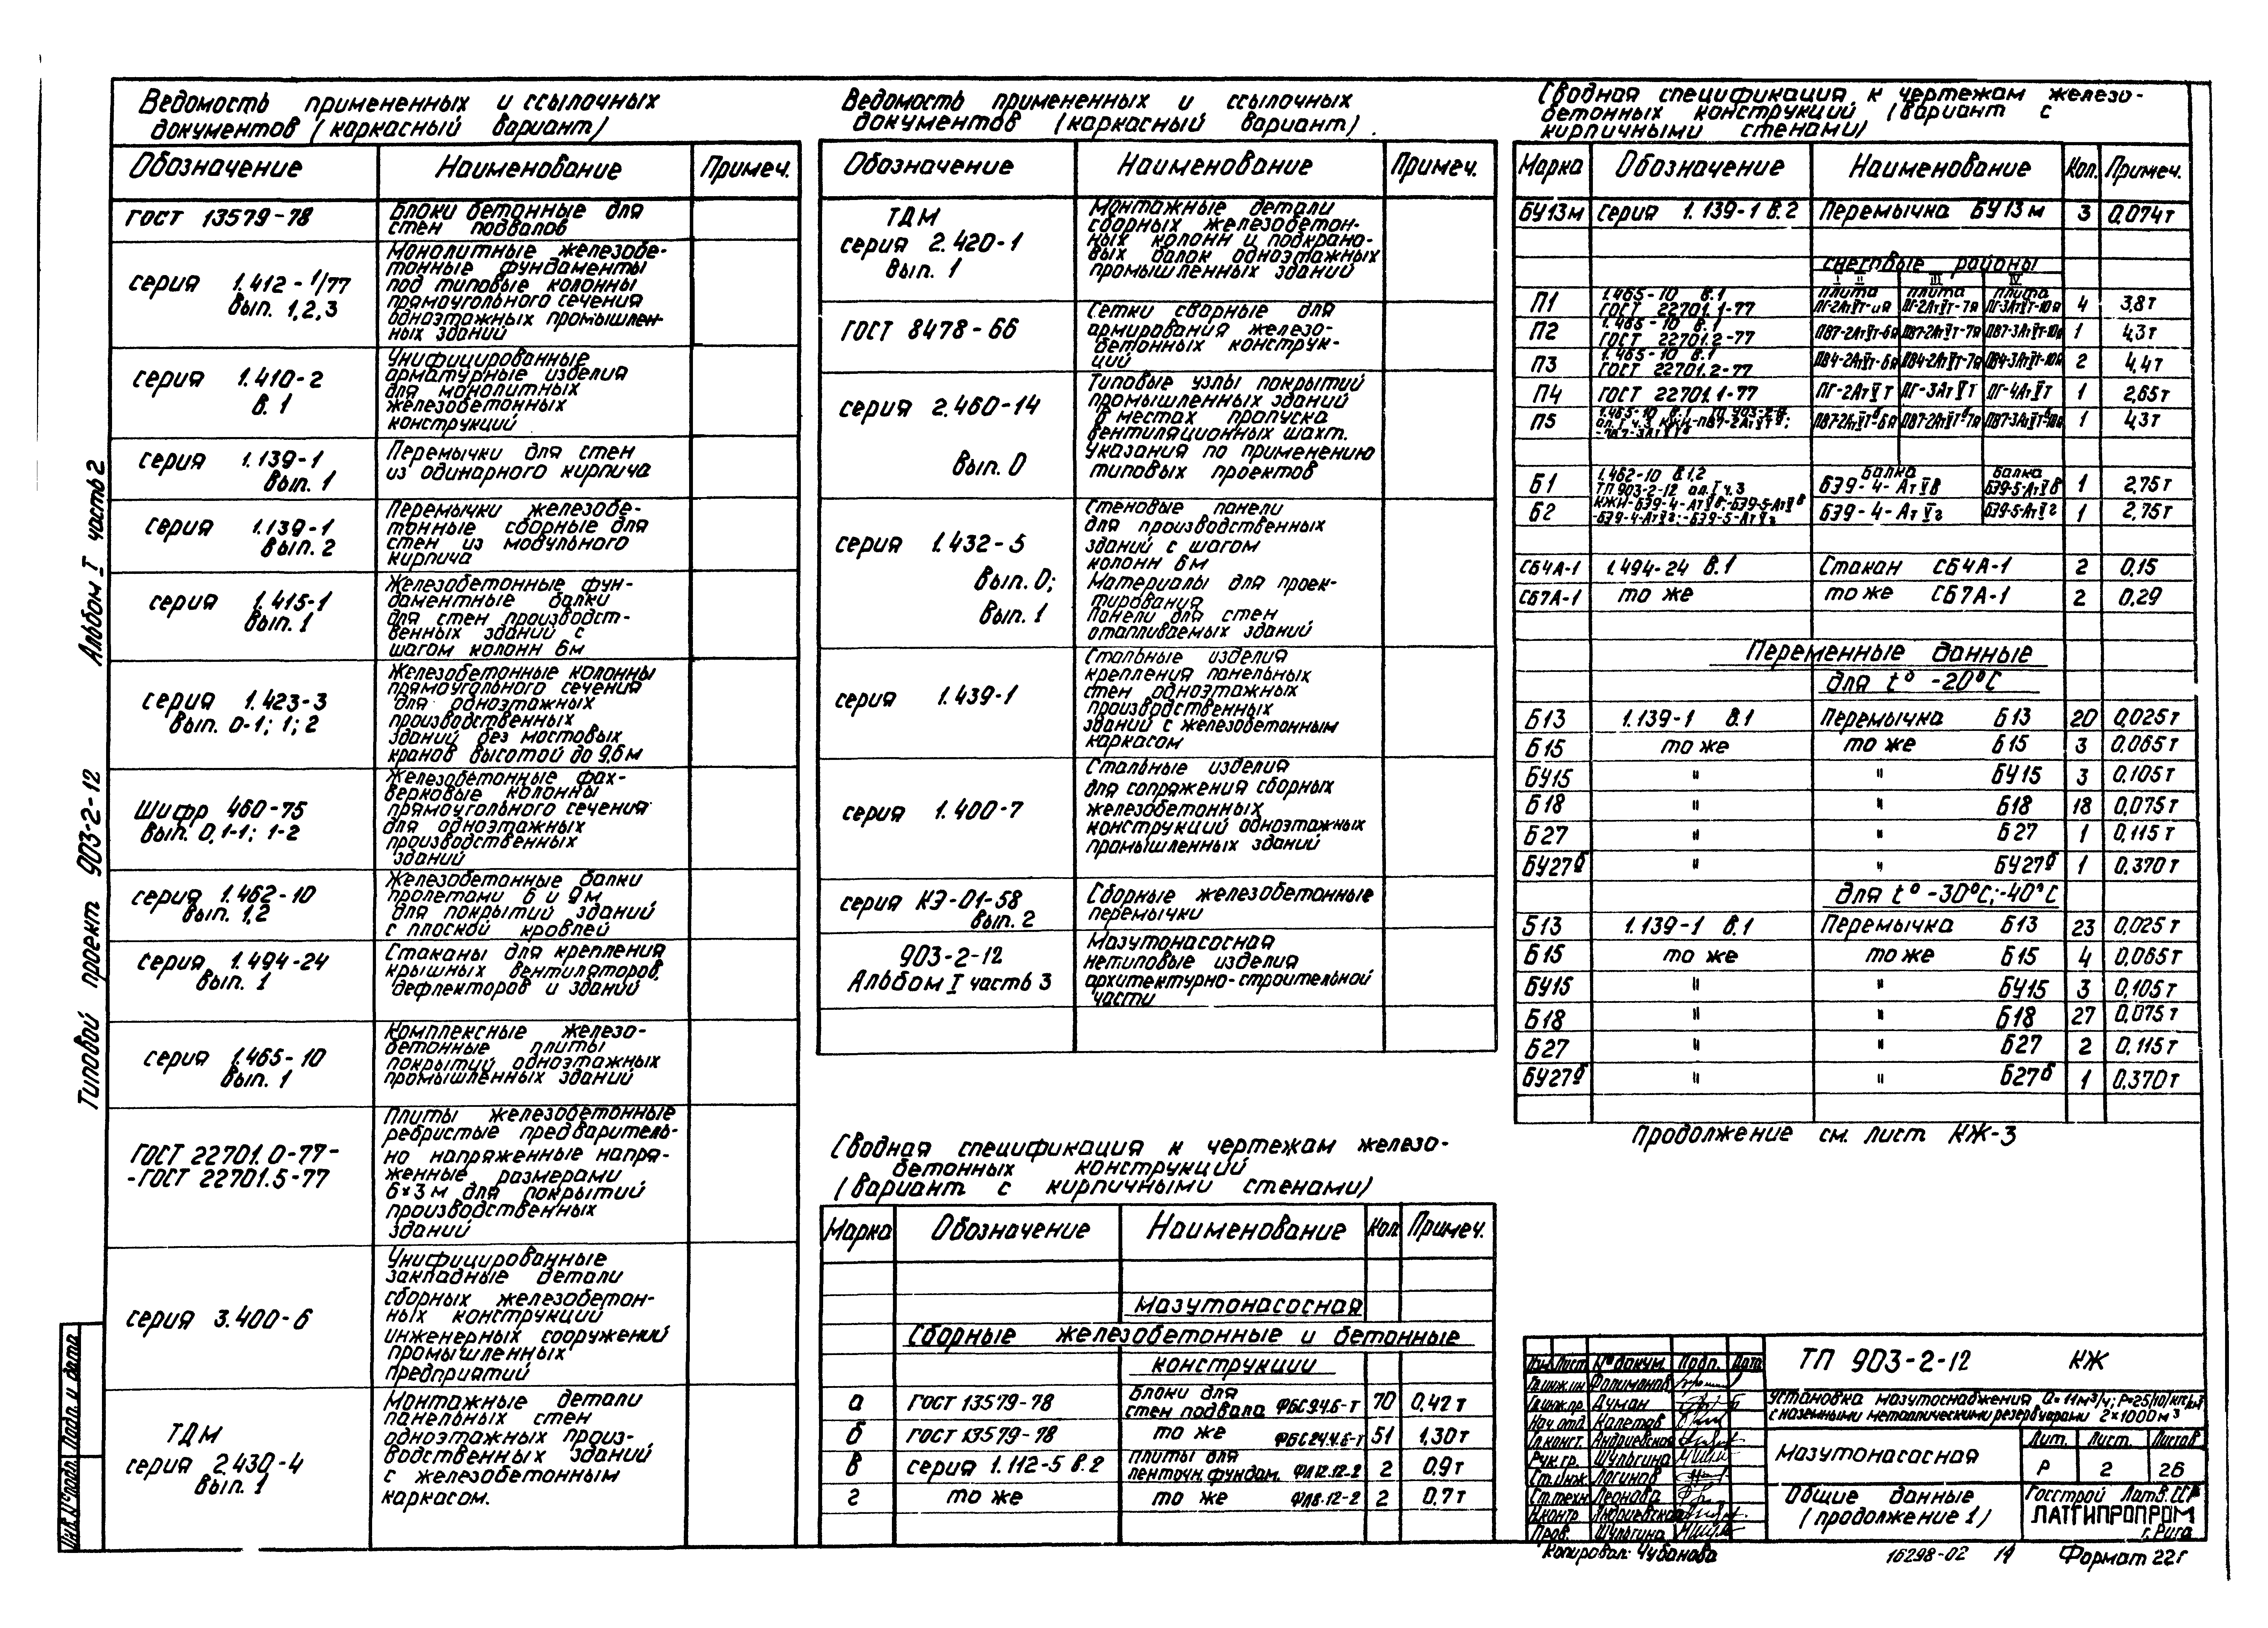 Ведомость примененных и ссылочных
документов (каркасный вариант)
Обозначение Наименование Примеч.
ГОСТ 13579-78
Блоки бетонные для
стен подвалов
серия 1.412-1/77
вып. 1,2,3
Монолитные железобе-
тонные фундаменты
под типовые колонны
прямоугольного сечения
одноэтажных промышлен-
ных зданий
серия 1.410-2
в. 1
Унифицированные
арматурные изделия
для монолитных
железобетонных
конструкций
серия 1.139-1
вып. 1
Перемычки для стен
из одинарного кирпича
серия 1.139-1
вып. 2
Перемычки железобе-
тонные сборные для
стен из модульного
кирпича
серия 1.415-1
вып. 1
Железобетонные фун-
даментные балки
для стен производст-
венных зданий с
шагом колонн 6м
серия 1.423-3
вып. 0-1; 1; 2
Железобетонные колонны
прямоугольного сечения
для одноэтажных
производственных
зданий без мостовых
кранов высотой до 9,6м
Шифр 460-75
вып. 0,1-1; 1-2
Железобетонные фах-
верковые колонны
прямоугольного сечения
для одноэтажных
производственных
зданий
серия 1.462-10
вып. 1,2
Железобетонные балки
пролетами 6 и 9м
для покрытий зданий
с плоской кровлей
серия 1.494-24
вып. 1
Стаканы для крепления
крышных вентиляторов,
дефлекторов и зданий
серия 1.465-10
вып. 1
Комплексные железо-
бетонные плиты
покрытий одноэтажных
промышленных зданий
ГОСТ 22701.0-77-
-ГОСТ 22701.5-77
Плиты железобетонные
ребристые предваритель-
но напряженные напря-
женные размерами
6×3м для покрытий
производственных
зданий
серия 3.400-6
Унифицированные
закладные детали
сборных железобетон-
ных конструкций
инженерных сооружений
промышленных
предприятий
ТДМ
серия 2.430-4
вып. 1
Монтажные детали
панельных стен
одноэтажных произ-
водственных зданий
с железобетонным
каркасом.
Ведомость примененных и ссылочных
документов (каркасный вариант).
Обозначение Наименование Примеч.
ТДМ
серия 2.420-1
вып. 1
Монтажные детали
сборных железобетон-
ных колонн и подкрано-
вых балок одноэтажных
промышленных зданий
ГОСТ 8478-66
Сетки сварные для
армирования железо-
бетонных конструк-
ций
серия 2.460-14
вып. 0
Типовые узлы покрытий
промышленных зданий
в местах пропуска
вентиляционных шахт.
Указания по применению
типовых проектов
серия 1.432-5
вып. 0;
вып. 1
Стеновые панели
для производственных
зданий с шагом
колонн 6м
Материалы для проек-
тирования
Панели для стен
отапливаемых зданий
серия 1.439-1
Стальные изделия
крепления панельных
стен одноэтажных
производственных
зданий с железобетонным
каркасом
серия 1.400-7
Стальные изделия
для сопряжения сборных
железобетонных
конструкций одноэтажных
промышленных зданий
серия КЭ-01-58
вып. 2
Сборные железобетонные
перемычки
903-2-12
Альбом I часть 3
Мазутонасосная
нетиповые изделия
архитектурно-строительной
части
Сводная спецификация к чертежам железо-
бетонных конструкций
(вариант с кирпичными стенами)
Марка Обозначение Наименование Кол Примеч.
Мазутонасосная
Сборные железобетонные и бетонные
конструкции
а ГОСТ 13579-78 Блоки для
стен подвала ФБС9.4.6-Т 70 0,42т
б ГОСТ 13579-78 то же ФБС24.4.6-Т 51 1,30т
в серия 1.112-5 в.2 плиты для
ленточн. фундам. ФЛ12.12-2 2 0,9т
г то же то же ФЛ8.12-2 2 0,7т
Сводная спецификация к чертежам железо-
бетонных конструкций (вариант с
кирпичными стенами)
Марка Обозначение Наименование Кол. Примеч.
БУ13м серия 1.139-1 в.2 Перемычка БУ13м 3 0,074т
снеговые районы
I II III IV
плита плита плита
П1 1.465-10 в.1
ГОСТ 22701.1-77 4 3,8т
П2 1.465-10 в.1
ГОСТ 22701.2-77 ПВ7-2АтVТ-6я ПВ7-2АтVТ-7я ПВ7-3АтVТ-10я 1 4,3т
П3 1.465-10 в.1
ГОСТ 22701.2-77 ПВ4-2АтVТ-6я ПВ4-2АтVТ-7я ПВ4-3АтVТ-10я 2 4,4т
П4 ГОСТ 22701.1-77 ПГ-2АтVТ ПГ-3АтVТ ПГ-4АтVТ 1 2,65т
П5 1.465-10 в.1 1 4,3т
балка балка
Б1 1.462-10 в.1,2
ТП 903-2-12 ал.I ч.3 БЭ9-4-АтVв БЭ9-5-АтVв 1 2,75т
КЖИ-БЭ9-4-АтVв;-БЭ9-5-АтVв
Б2 -БЭ9-4-АтVг;-БЭ9-5-АтVг БЭ9-4-АтVг БЭ9-5-АтVг 1 2,75т
СБ4А-1 1.494-24 в.1 Стакан СБ4А-1 2 0,15
СБ7А-1 то же то же СБ7А-1 2 0,29
Переменные данные
для t° -20°С
Б13 1.139-1 в.1 Перемычка Б13 20 0,025т
Б15 то же то же Б15 3 0,065т
БУ15 " " БУ15 3 0,105т
Б18 " " Б18 18 0,075т
Б27 " " Б27 1 0,115т
БУ27б " " БУ27б 1 0,370т
для t° -30°С;-40°С
Б13 1.139-1 в.1 Перемычка Б13 23 0,025т
Б15 то же то же Б15 4 0,065т
БУ15 " " БУ15 3 0,105т
Б18 " " Б18 27 0,075т
Б27 " " Б27 2 0,115т
БУ27б " " Б27б 1 0,370т
Продолжение см. лист КЖ-3
Изм Лист № докум. Подп. Дата
Гл.инж.ин Фалиманов
Гл.инж.пр. Думан
Нач.отд. Калетов
Гл.конст. Андриевская
Рук.гр. Шульгина
Ст.инж. Логинов
Ст.техн. Леонова
Н.контр. Андриевская
Пров. Шульгина
ТП 903-2-12 КЖ
Установка мазутоснабжения Q=11м³/ч; Р=25(10)кгс/см²
с наземными металлическими резервуарами 2×1000м³
Мазутонасосная
Лит. Лист. Листов
Р 2 26
Общие данные
(продолжение 1)
Госстрой Латв.ССР
ЛАТГИПРОПРОМ
г.Рига
Копировал: Чубанова 16298-02 14 Формат 22г
Типовой проект 903-2-12 Альбом I часть 2
Инв.№подл. Подп. и дата